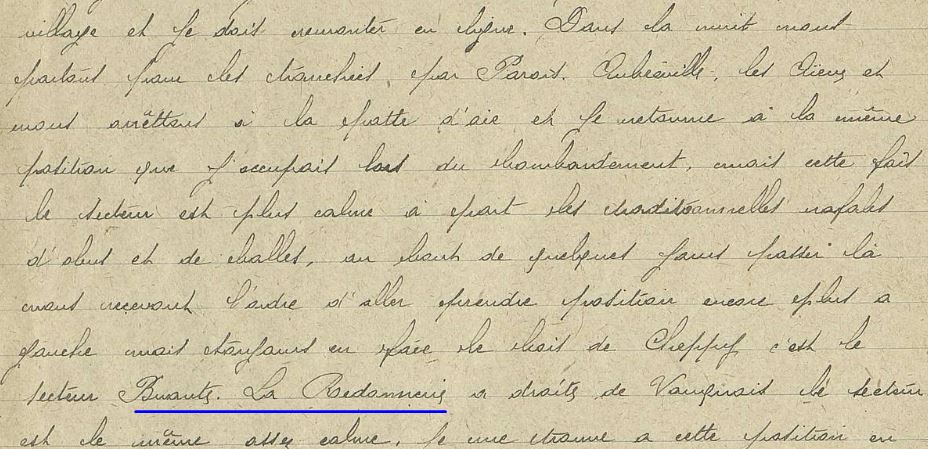 village et je dois remonter en ligne. Dans la nuit nous
partons pour les tranchées, par Parois. Aubréville, les Aieux et
nous arrêttons à la patte d'oie et je retourne à la même
position que j'occupais lors du bombardement, mais cette fois
le secteur est plus calme à part les traditionnelles rafales
d'obus et de balles, au bout de quelques jours passer là
nous recevons l'ordre d'aller prendre position encore plus a
gauche mais toujours en face le bois de Cheppy c'est le
secteur Buants. La a droite de Vauquois le secteur
est le même assez calme. Je me trouve a cette position en